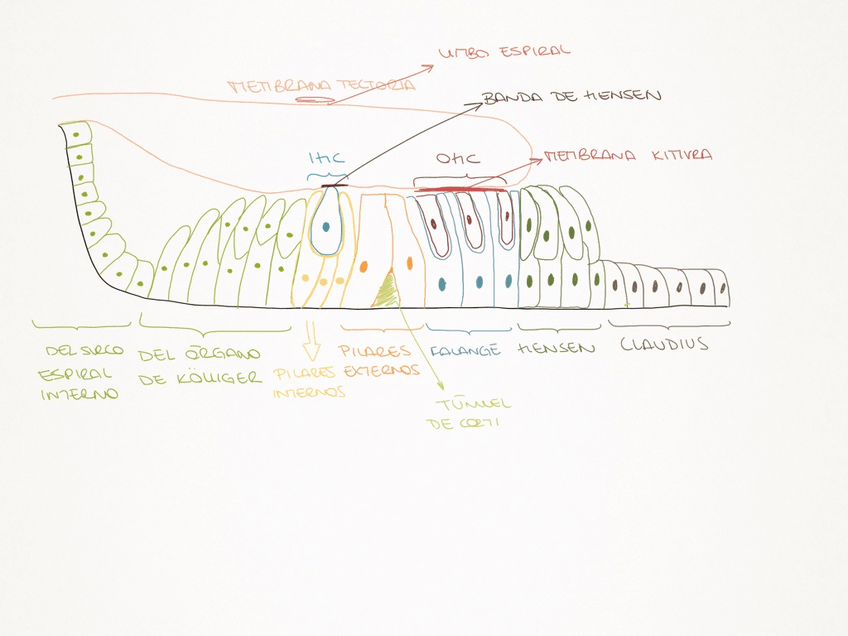 LIMBO ESPIRAL
MEMBRANA TECTORIA
BANDA DE HENSEN
IHC
OHC
MEMBRANA KITIVRA
DEL SURCO
ESPIRAL
INTERNO
DEL ÓRGANO
DE KÖLLIGER
PILARES
INTERNOS
PILARES
EXTERNOS
FALANGE
HENSEN
CLAUDIUS
TÚNNEL
DE CORTI